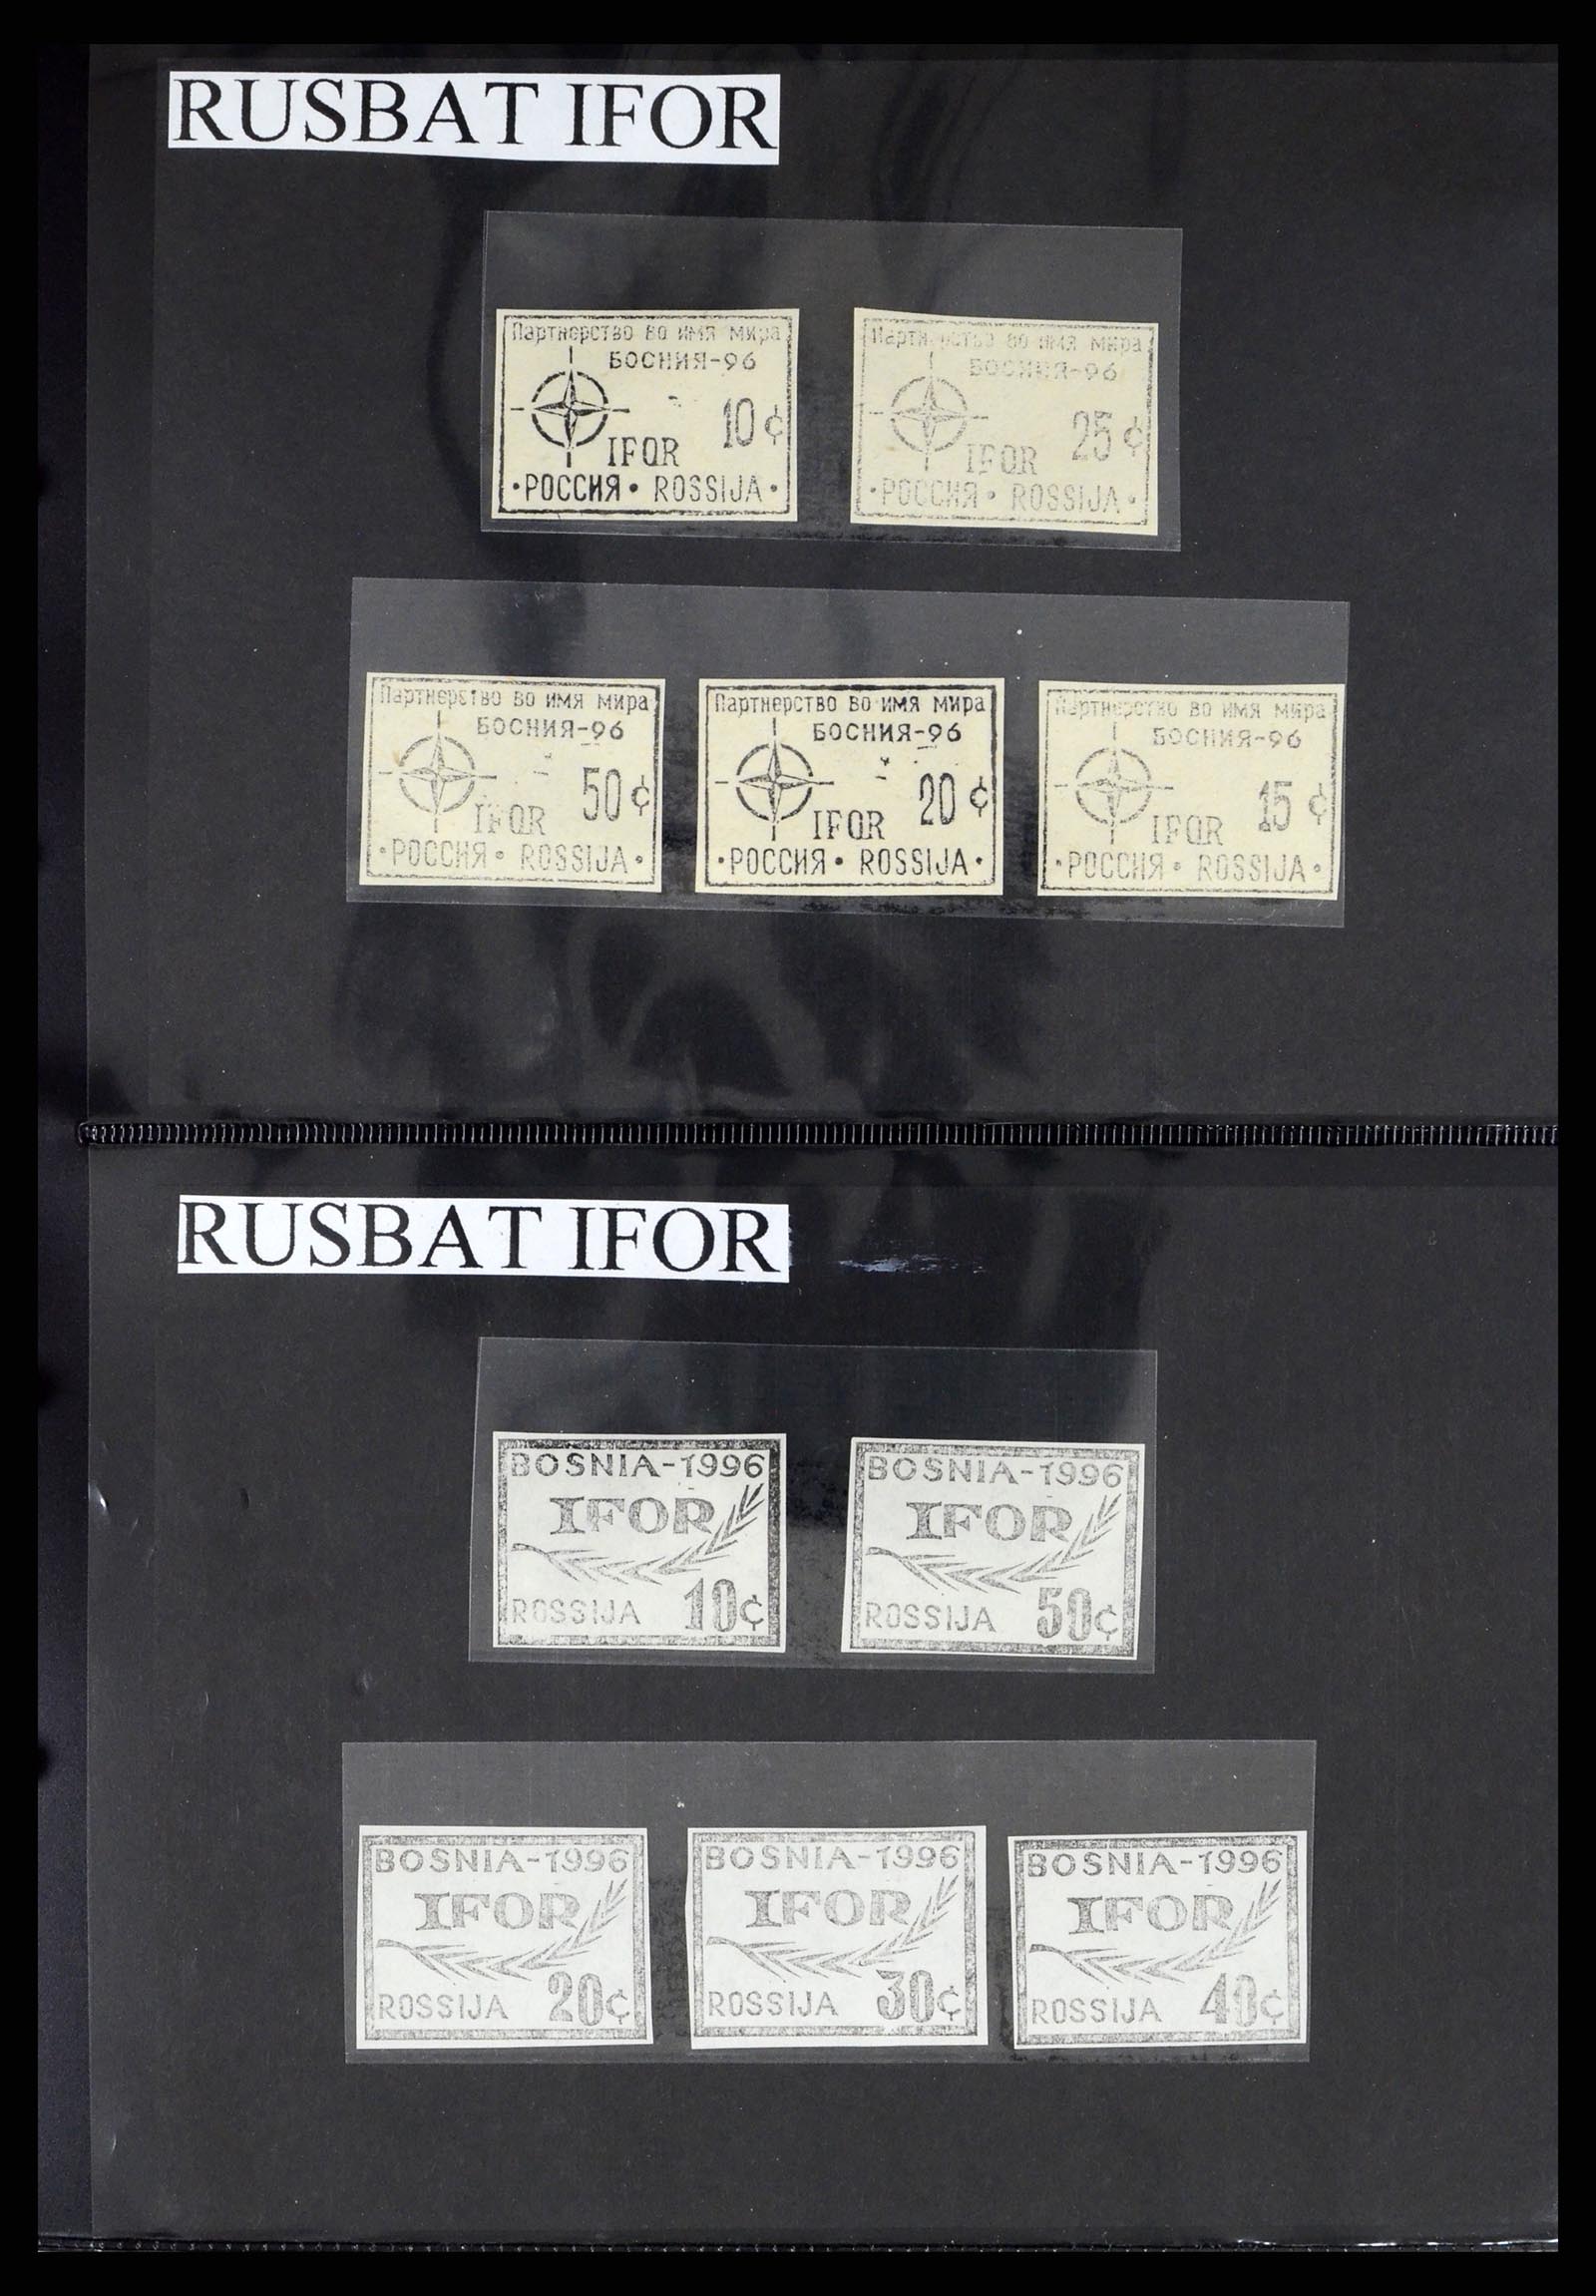 RUSBAT IFOR
Партнерство во имя мира
БОСНИЯ-96
10 ¢
IFOR
•РОССИЯ• ROSSIJA•
Партнерство во имя мира
БОСНИЯ-96
25 ¢
IFOR
•РОССИЯ• ROSSIJA•
Партнерство во имя мира
БОСНИЯ-96
50 ¢
IFOR
•РОССИЯ• ROSSIJA•
Партнерство во имя мира
БОСНИЯ-96
20 ¢
IFOR
•РОССИЯ• ROSSIJA•
Партнерство во имя мира
БОСНИЯ-96
15 ¢
IFOR
•РОССИЯ• ROSSIJA•
RUSBAT IFOR
BOSNIA-1996
IFOR
ROSSIJA 10¢
BOSNIA-1996
IFOR
ROSSIJA 50¢
BOSNIA-1996
IFOR
ROSSIJA 20¢
BOSNIA-1996
IFOR
ROSSIJA 30¢
BOSNIA-1996
IFOR
ROSSIJA 40¢